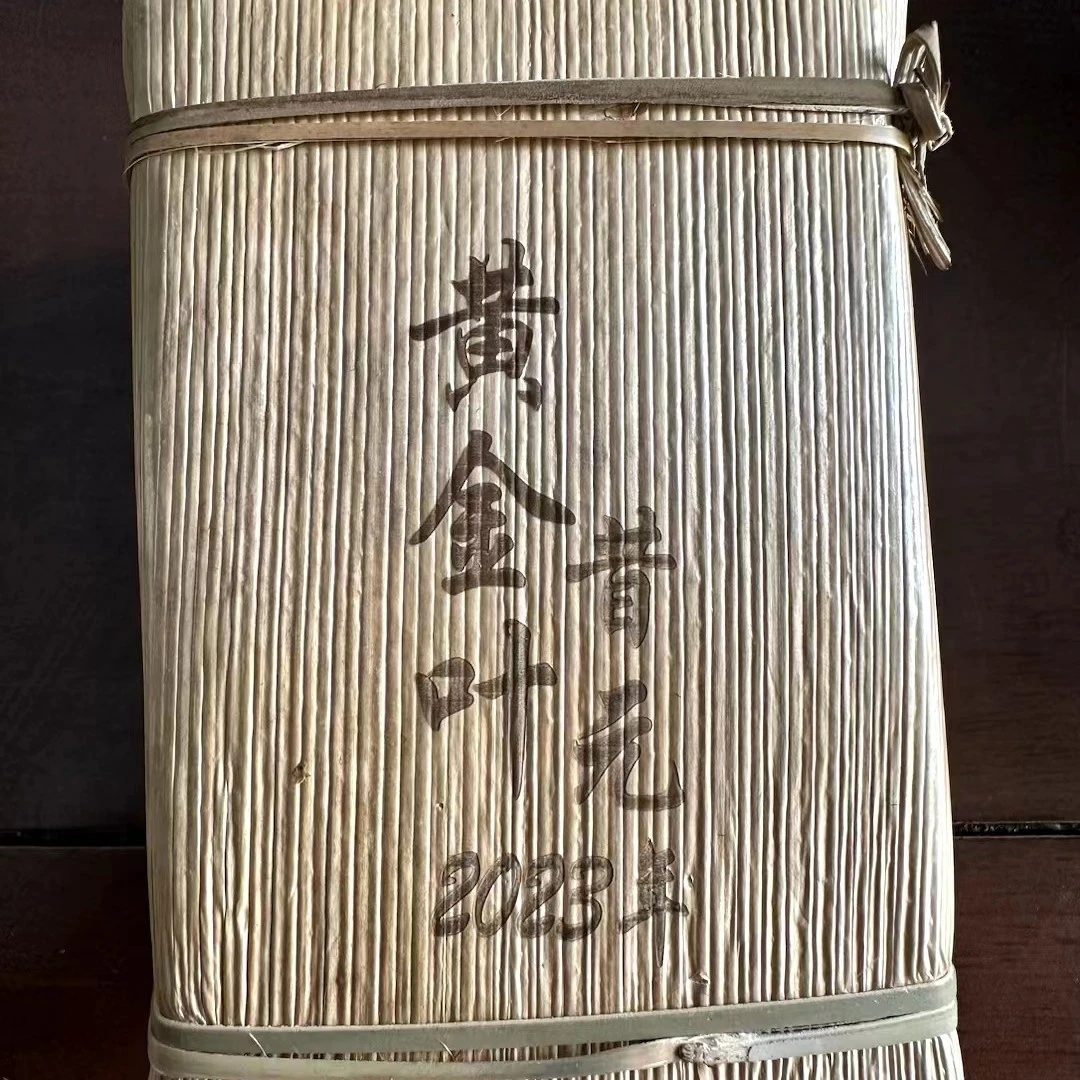 黄金叶
昔元
2023年